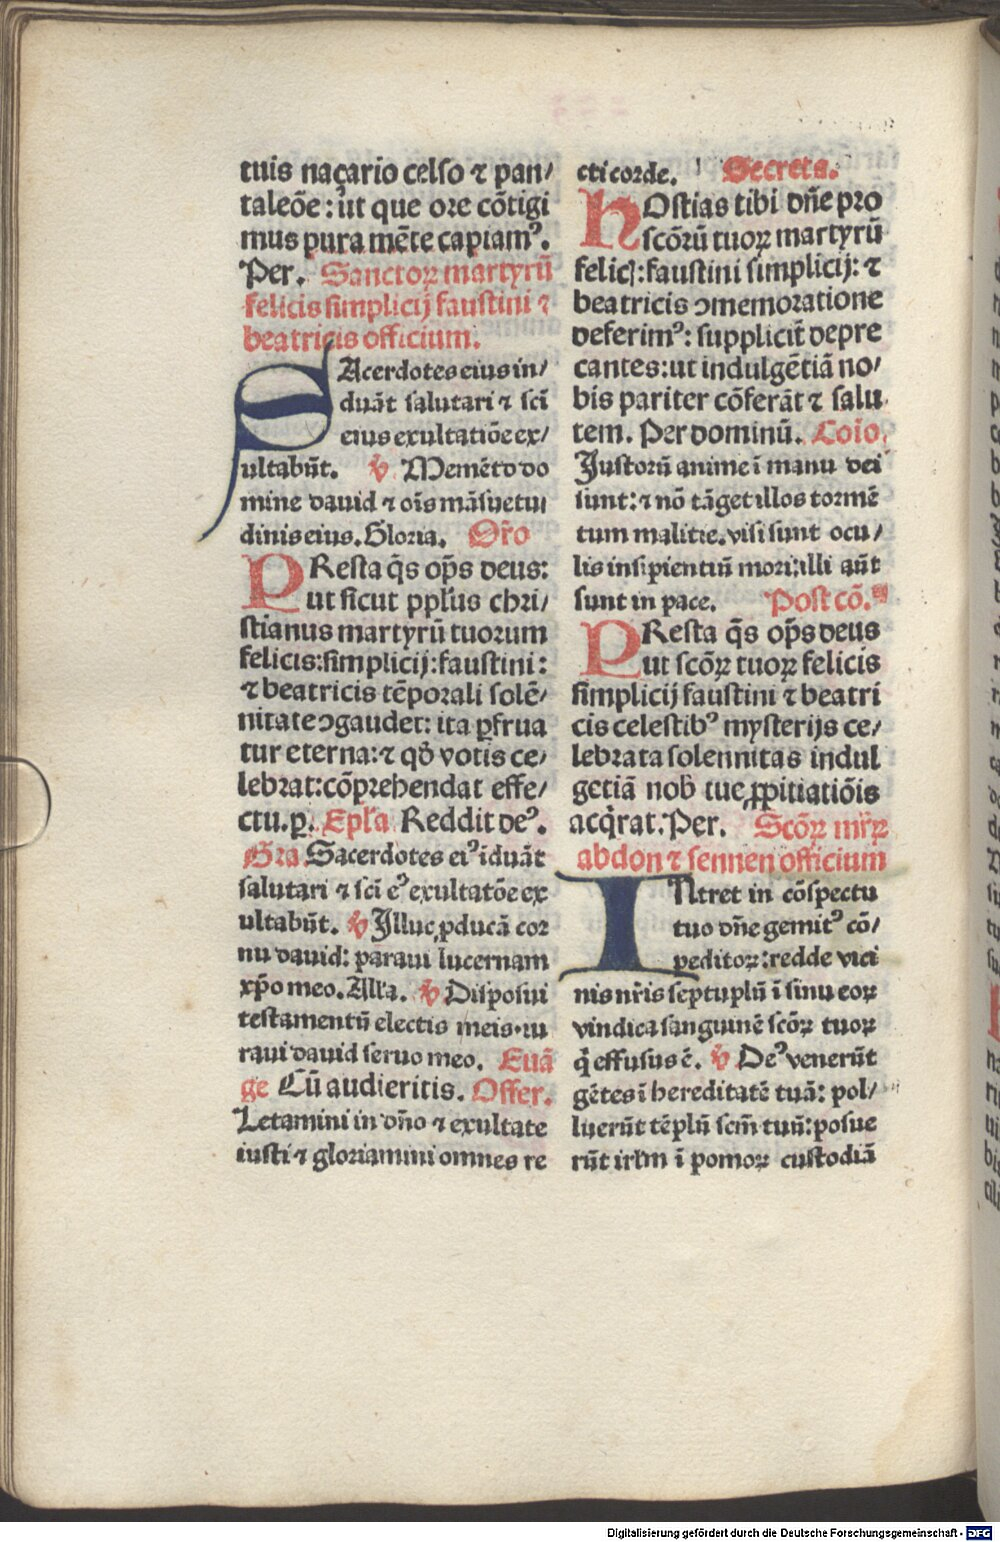 tuis naçario celso ⁊ pan/
taleōe: ut que ore cōtigi
mus pura mēte capiamꝰ.
Per. Sanctoꝝ martyrū
felicis simplicij faustini ⁊
beatricis officium.
SAcerdotes eius in/
duāt salutari ⁊ sci̅
eius exultatiōe ex/
ultabūt. ℣ Memēto do
mine dauid ⁊ oīs māsuetu/
dinis eius. Gloria. Oro̅
PResta q̄s op̄s deus:
ut sicut ppl̓us chri/
stianus martyrū tuorum
felicis: simplicij: faustini:
⁊ beatricis tēporali solē/
nitate ꝯgaudet: ita ꝑfrua
tur eterna: ⁊ qd̓ votis ce/
lebrat: cōprehendat effe/
ctu. ꝑ. Epl̓a Reddit deꝰ.
Gra. Sacerdotes eiꝰ iduāt
salutari ⁊ sci̅ eꝰ exultatōe ex
ultabūt. ℣ Illuc ꝓducā cor
nu dauid: paraui lucernam
xp̄o meo. All̓a. ℣ Disposui
testamentū electis meis. iu
raui dauid seruo meo. Euā
ge Cū audieritis. Offer.
Letamini in dn̄o ⁊ exultate
iusti ⁊ gloriamini omnes re
cti corde. Secreta.
HOstias tibi dn̄e pro
scōrū tuoꝝ martyrū
felicꝭ: faustini simplicij: ⁊
beatricis ꝯmemoratione
deferimꝰ: supplicit̄ depre
cantes: ut indulgētiā no/
bis pariter cōferāt ⁊ salu
tem. Per dominū. Coīo.
Iustorū anime ī manu dei
sunt: ⁊ nō tāget illos tormē
tum malitie. visi sunt ocu/
lis insipientiū mori: illi aūt
sunt in pace. Post cō.
PResta q̄s op̄s deus
ut scōꝝ tuoꝝ felicis
simplicij faustini ⁊ beatri
cis celestibꝰ mysterijs ce/
lebrata solennitas indul
getiā nob̄ tue ꝓpitiatiōis
acq̄rat. Per. Scōꝝ mr̄ꝝ
abdon ⁊ sennen officium
INtret in cōspectu
tuo dn̄e gemitꝰ cō/
peditoꝝ: redde vici
nis nr̄is septuplū ī sinu eoꝝ
vindica sanguinē scōꝝ tuoꝝ
q̄ effusus ē. ℣ Deꝰ venerūt
gētes ī hereditatē tuā: pol/
luerūt tēplū scm̄ tuū: posue
rūt irlm̄ ī pomoꝝ custodiā
Digitalisierung gefördert durch die Deutsche Forschungsgemeinschaft - DFG